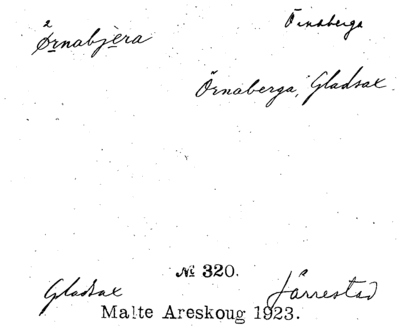 2
Ørnabjera
Örnaberga
Örnaberga, Gladsax
№ 320.
Gladsax
Järrestad
Malte Areskoug 1923.